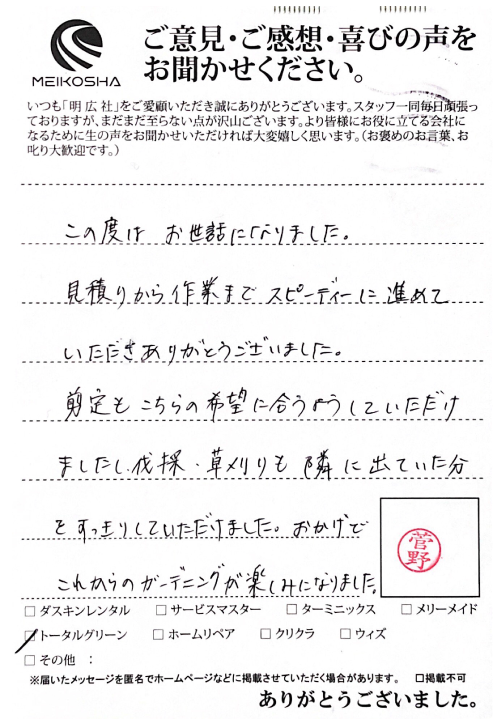 MEIKOSHA
ご意見・ご感想・喜びの声を
お聞かせください。
いつも「明広社」をご愛顧いただき誠にありがとうございます。スタッフ一同毎日頑張っ
ておりますが、まだまだ至らない点が沢山ございます。より皆様にお役に立てる会社に
なるために生の声をお聞かせいただければ大変嬉しく思います。（お褒めのお言葉、お
叱り大歓迎です。）
この度は お世話になりました。
見積りから作業まで スピーディーに進めて
いただきありがとうございました。
剪定も こちらの希望に合うようしていただけ
ましたし、伐採・草刈りも 隣に出ていた分
をすっきりしていただけました。おかげで
これからのガーデニングが楽しみになりました。
菅野
□ ダスキンレンタル □ サービスマスター □ ターミニックス □ メリーメイド
□ トータルグリーン □ ホームリペア □ クリクラ □ ウィズ
□ その他 ：
※届いたメッセージを匿名でホームページなどに掲載させていただく場合があります。 □掲載不可
ありがとうございました。